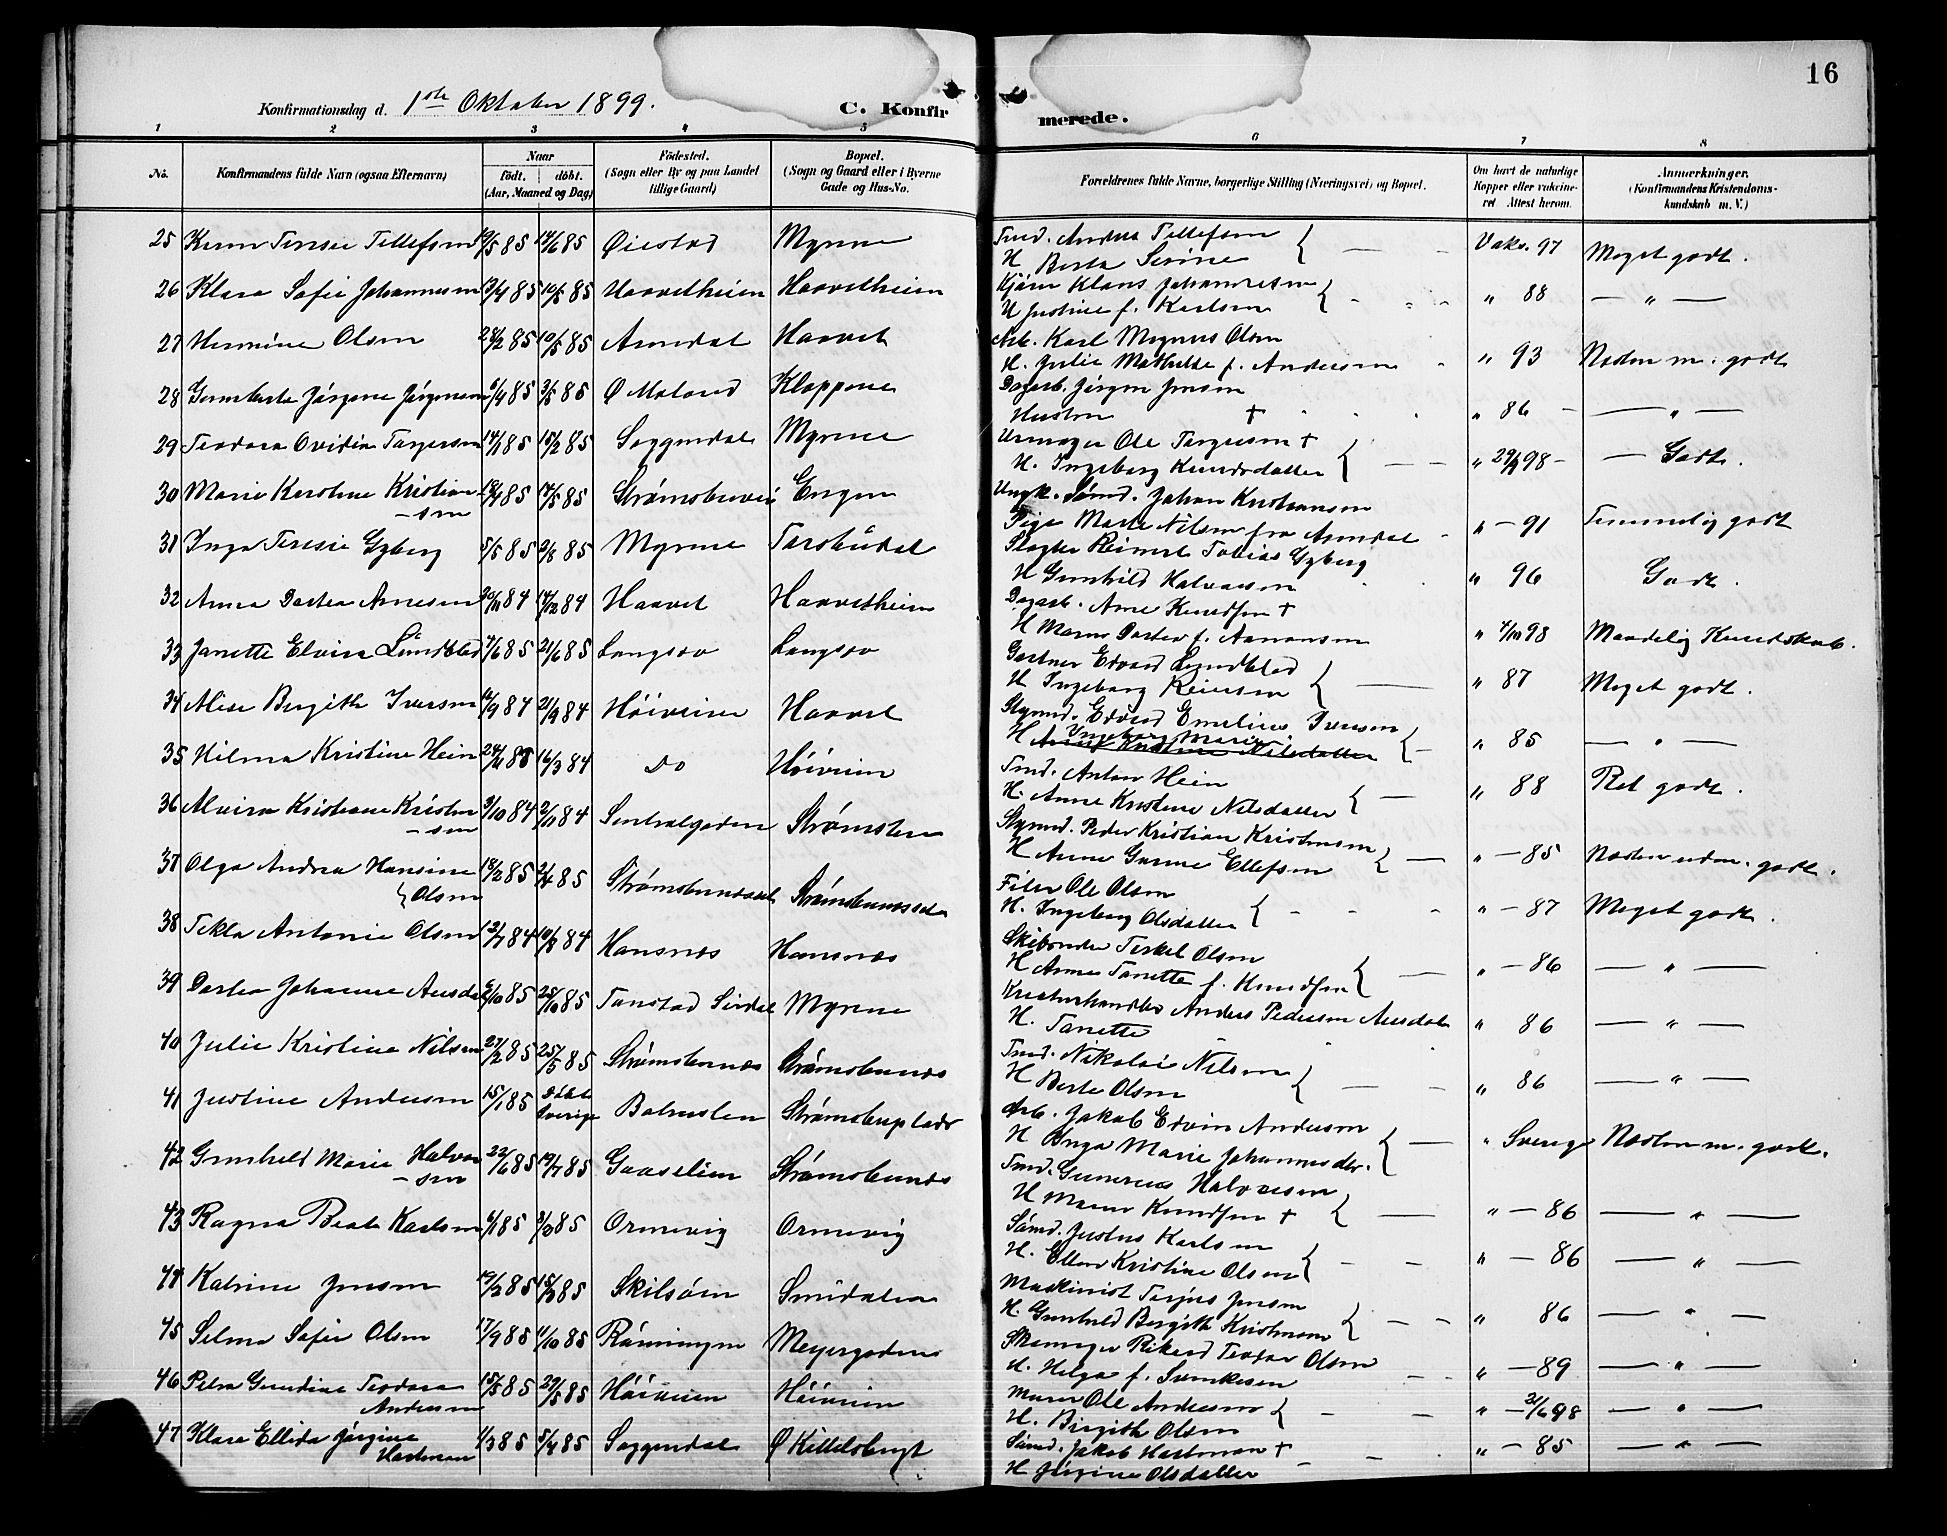 16
Konfirmationsdag d. 1ste Oktober 1899.
C. Konfirmerede.
1 2 3 4 5 6 7 8
No.
Konfirmandens fulde Navn (ogsaa Efternavn)
Naar
födt. döbt.
(Aar, Maaned og Dag)
Födested.
(Sogn eller By og paa Landet tillige Gaard)
Bopæl.
(Sogn og Gaard eller i Byerne Gade og Hus-No.
Forældrenes fulde Navne, borgerlige Stilling (Næringsvei) og Bopæl.
Om havt de naturlige Kopper eller vakcineret Attest herom.
Anmærkninger.
(Konfirmandens Kristendomskundskab m. V.)
25 Tellefsen 85 14/6 85 Øiestad Myrene Tmd. Anders Tellefsen H Berta Serine Vakc. 97 Meget godt.
26 Klara Sofie Johannesen 85 10/5 85 Haavetheien Haavetheien Klaus Johannesen H Justine f. Karlsen " 88 — " —
27 Hermine Olsen 28/2 85 10/5 85 Arendal Haavet Arb. Karl Magnus Olsen H. Julie Mathilde f. Andersen " 93 Næsten m. godt
28 Jørgine Jørgensen 6/4 85 3/5 85 Ø Moland Kloppene Dagarb. Jørgen Jensen Hustru + " 86 — " —
29 Teodora Ovidia Tarjersen 14/1 85 15/2 85 Soggendal Myrene Urmager Ole + H. Ingeborg Knudsdatter " 98 — Godt.
30 Marie Karoline Kristiansen 85 14/5 85 Engene Ungk. Sømd. Johan Kristiansen Pige Marie Nilsen fra Arendal " — 91 Temmelig godt
31 Inga Teresie Gyberg 5/5 85 2/8 85 Myrene Slagter Reinert Tobias Gyberg H Gunhild Halvorsen " 96 Godt.
32 Anna Dortea Arnesen 20/11 84 14/12 84 Haavet Haavetheien Dagarb. Arne Knudsen + H Maren Dortea f. Aanonsen " 4/10 98 Maadelig Kundskab.
33 Janette Elvira Lundblad 7/6 85 21/6 85 Langsæv Langsæv Gartner Edvard Lundblad H Ingeborg Reiersen " 87 Meget godt.
34 Alise Bergithe Iversen 84 21/9 84 Høiveien Haavet Styrmd. Edvard Emelius Iversen H Ingeborg Marie " 85 — " —
35 Hilma Kristine Hein 24/11 83 16/3 84 do Høiveien Tmd. Anton Hein H. Anne Kristine Nilsdatter " 88 Ret godt.
36 Alvira Kristiane Kristensen 3/10 84 2/11 84 Sentralgaden Strømsbu Styrmd. Peder Kristian Kristensen H Anne Gurine Ellefsen " — 85 Næsten udm. godt.
37 Olga Andrea Hansine Olsen 18/2 85 2/4 85 Strømsbunæsset Strømsbunæsset Ole Olsen H. Ingeborg Olsdatter " — 87 Meget godt.
38 Tekla Antonie Olsen 12/7 84 10/8 84 Hansnæs Hansnæs Skibstømr Terkel Olsen H Anne Tanette f. Knudsen " — 86 — " —
39 Dortea Johanne Ausdal 85 25/10 85 Tonstad Sirdal Myrene Kreaturhandler Anders Pedersen Ausdal H. Tanette " 86 — " —
40 Julie Kristine Nilsen 27/2 85 25/5 85 Strømsbunæs Strømsbunæs Tmd. Nikolai Nilsen H Berte Olsen " 86 — " —
41 Justine Andersen 15/1 85 döbt Sverige Strømsbuplads Arb. Jakob Edvin Andersen H Inga Marie Johannesdr. " Sverige Næsten m. godt.
42 Gunhild Marie Halvorsen 22/6 85 19/7 85 Gaaselien Strømsbunæs Tmd. Gunerius Halvorsen H Maren Knudsen + " — 86 — " —
43 Ragna Beate Karlsen 6/1 85 8/3 85 Ormevig Ormevig Sømd. Justus Karlsen H. Ellen Kristine Olsen " — 86 — " —
44 Katrine Jensen 19/2 85 15/3 85 Skilsøien Smidalen Maskinist Terjus Jensen H. Gunhild Bergithe Kristensen " 86 — " —
45 Selma Sofie Olsen 17/9 85 11/10 85 Rønningen Meyergaden Skomager Rikard Teodor Olsen H. Helga f. " — 89 — " —
46 Petra Gundine Teodora Andersen 15/3 85 29/5 85 Høiveien Høiveien Murer Ole Andersen H. Birgithe Olsen " — 21/6 98 — " —
47 Klara Ellida Jørgine Hartman 1/3 85 5/4 85 Soggendal Ø Kittelsbugt Sømd. Jakob Hartman + H Jørgine Olsdatter " — 85 — " —